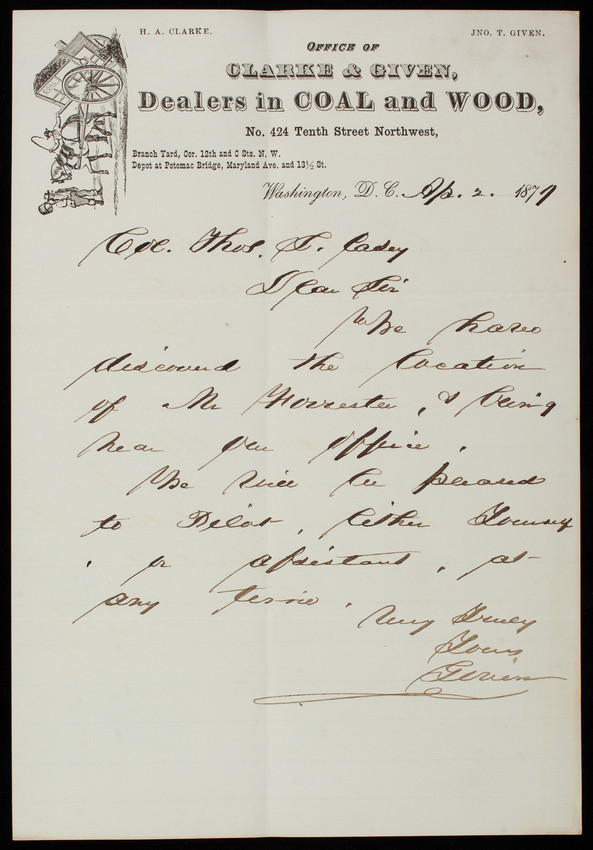 H. A. CLARKE.
JNO. T. GIVEN.
OFFICE OF
CLARKE & GIVEN,
Dealers in COAL and WOOD,
No. 424 Tenth Street Northwest,
Branch Yard, Cor. 12th and C Sts. N. W.
Depot at Potomac Bridge, Maryland Ave. and 13½ St.
Washington, D. C. Ap. 2. 1879
Col. Thos. L. Casey
Dear Sir
We have
discovered the location
of Mr Forrester, & being
near our office,
We will be pleased
to Pilot, Either Yourself
, or assistant, at
any time.
Very Truly
Yours
Given